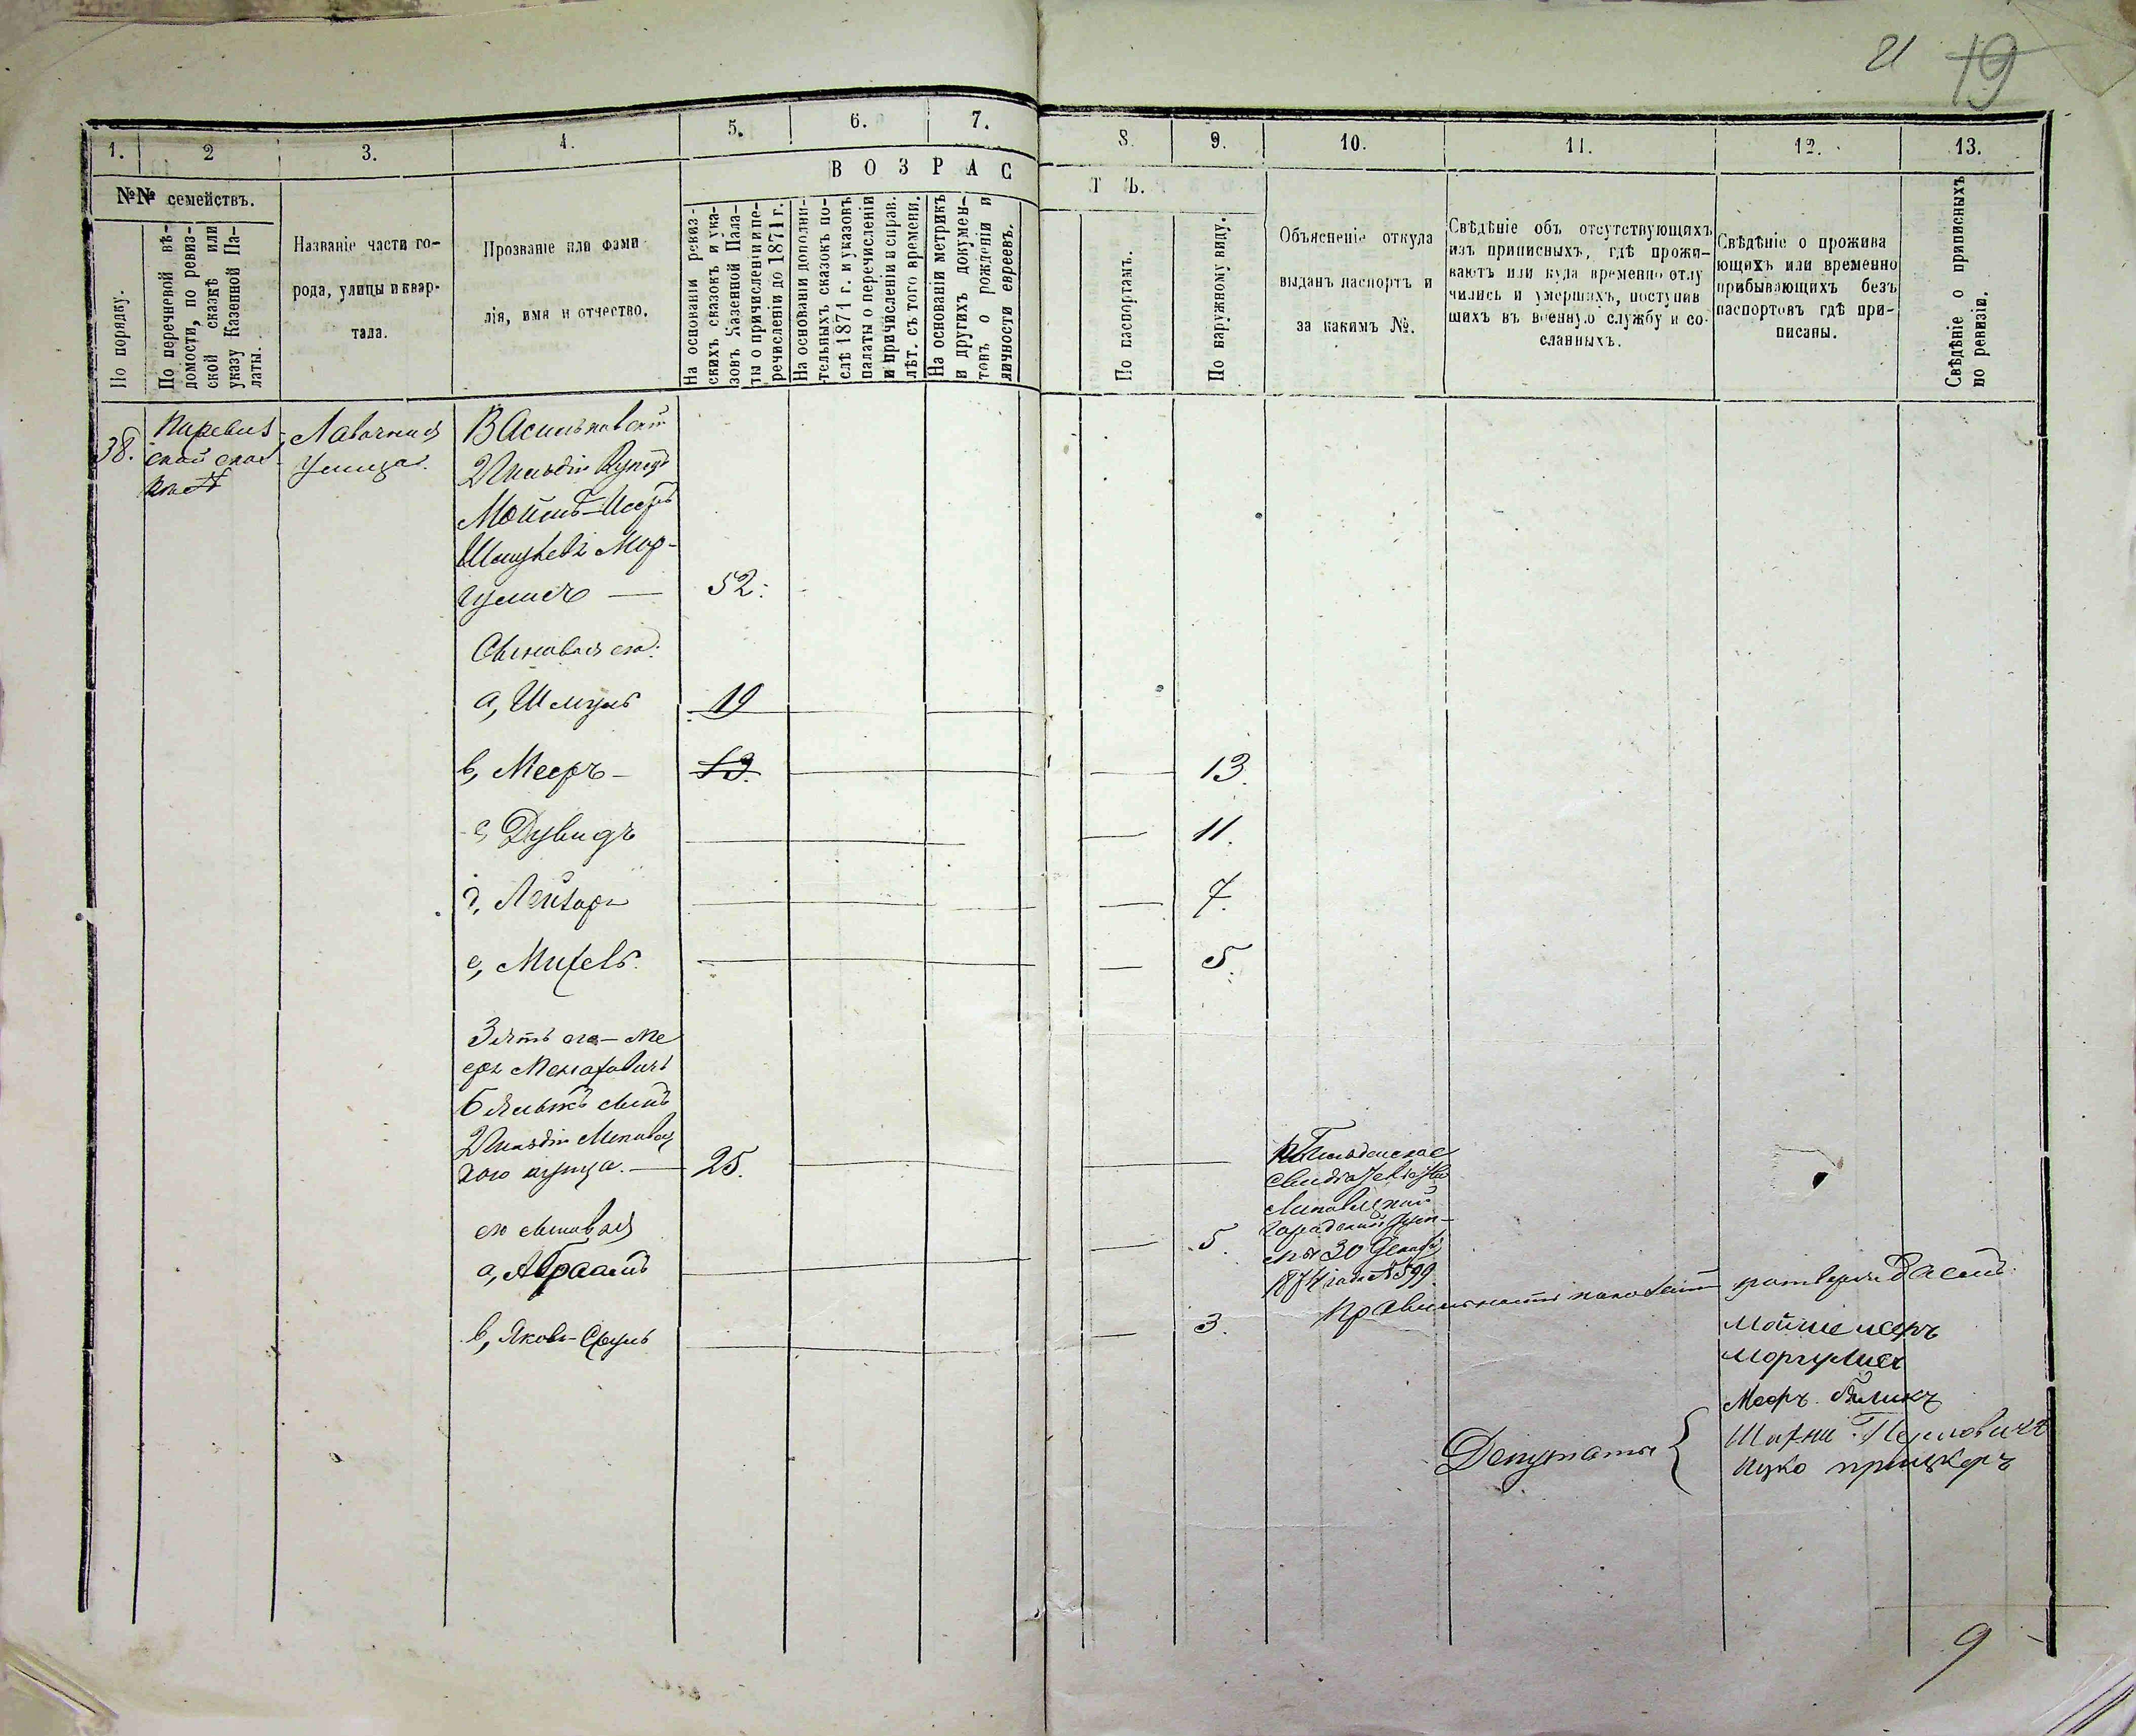 21 19
1. 2 3. 4. 5. 6. 7. 8. 9. 10. 11. 12. 13.
№№ семействъ.
По порядку.
По перечневой вѣ-
домости, по ревиз-
ской сказкѣ или
указу Казенной Па-
латы.
Названіе части го-
рода, улицы и квар-
тала.
Прозваніе или фами
лія, имя и отчество.
ВОЗРАС
Т Ъ.
На основаніи ревиз-
скихъ сказокъ и ука-
зовъ Казенной Пала-
ты о причисленіи и пе-
речисленіи до 1871 г.
На основаніи дополни-
тельныхъ сказокъ по-
слѣ 1871 г. и указовъ
палаты о перечисленіи
и причисленіи и справ.
лѣт. съ того времени.
На основаніи метрикъ
и другихъ докумен-
товъ о рожденіи и
личности евреевъ.
По паспортамъ.
По наружному виду.
Объясненіе откуда
выданъ паспортъ и
за какимъ №.
Свѣдѣніе объ отсутствующихъ
изъ приписныхъ, гдѣ прожи-
ваютъ или куда временно отлу
чились и умершихъ, поступив
шихъ въ военную службу и со-
сланныхъ.
Свѣдѣніе о прожива
ющихъ или временно
прибывающихъ безъ
паспортовъ гдѣ при-
писаны.
Свѣдѣніе о приписныхъ
по ревизіи.
38.
По ревиз
ской сказ
кѣ №
Лавочная
Улица.
Васильковскій
2 Гильдіи Купецъ
Мойшъ-Исеръ
Мор-
гулисъ — 52.
Сыновья его:
а, Шмуль 19
в, Мееръ — 13. 13.
с, Дувидъ 11.
д, Лейзоръ 7.
е, Михель. 5.
Зять его — Ме
еръ
Бяликъ сынъ
2 Гильдіи Липовец
кого купца. — 25.
его сыновья
а, Абраамъ 5.
в, Яковъ-Сруль 3.
Гильдейское
Свидѣтельство
Липовецкой
Городской
30 Декабр
1874 года №599.
Правильность показаній утверждаемъ
Мойше исеръ
Моргулисъ
Мееръ Бяликъ
Депутаты {
Ицко прицкеръ
9